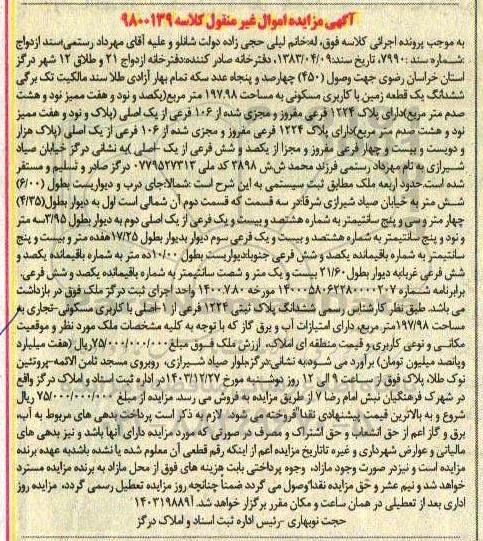 آگهی مزایده اموال غیر منقول کلاسه ۹۸۰۰۱۳۹
به موجب پرونده اجرائی کلاسه فوق، له:خانم لیلی حجی زاده دولت شانلو و علیه آقای مهرداد رستمی،سند ازدواج
:شماره سند :۷۹۹۰، تاریخ سند:۱۳۸۳/۰۴/۰۹، دفترخانه صادر کننده:دفترخانه ازدواج ۲۱ و طلاق ۱۲ شهر درگز
استان خراسان رضوی جهت وصول (۴۵۰) چهارصد و پنجاه عدد سکه تمام بهار آزادی طلا سند مالکیت تک برگی
ششدانگ یک قطعه زمین با کاربری مسکونی به مساحت ۱۹۷.۹۸ متر مربع(یکصد و نود و هفت ممیز نود و هشت
صدم متر مربع)دارای پلاک ۱۲۲۴ فرعی مفروز و مجزی شده از ۱۰۶ فرعی از یک اصلی (پلاک و نود و هفت ممیز
نود و هشت صدم متر مربع)دارای پلاک ۱۲۲۴ فرعی مفروز و مجزی شده از ۱۰۶ فرعی از یک اصلی (پلاک هزار
و دویست و بیست و چهار فرعی مفروز و مجزا از یکصد و شش فرعی از یک - اصلی )به نشانی درگز خیابان صیاد
شیرازی به نام مهرداد رستمی فرزند محمد ش.ش ۳۸۹۸ کد ملی ۰۷۷۹۵۲۷۳۱۳ درگز صادر و تسلیم و مستقر
شده است.حدود اربعه ملک مطابق ثبت سیستمی به این شرح است :شمالا:جای درب و دیواریست بطول (۶/۰۰)
شش متر به خیابان صیاد شیرازی شرقا:در سه قسمت که قسمت دوم آن شمالی است اول به دیوار بطول(۴/۳۵)
چهار متر و سی و پنج سانتیمتر به شماره هشتصد و بیست و یک فرعی از یک اصلی دوم به دیوار بطول ۳/۹۵سه متر
و نود و پنج سانتیمتر به شماره هشتصد و بیست و یک فرعی سوم دیوار بدیوار بطول ۱۷/۲۵هفده متر و بیست و پنج
سانتیمتر به شماره باقیمانده یکصد و شش فرعی جنوبا:دیواریست بطول ۱۰/۰۰ده متر به شماره باقیمانده یکصد و
شش فرعی غربا:به دیوار بطول ۲۱/۶۰ بیست و یک متر و شصت سانتیمتر به شماره باقیمانده یکصد و شش فرعی.
برابرنامه شماره ۱۴۰۰۰۵۸۰۶۲۲۸۰۰۰۰۲۰۷ مورخه ۱۴۰۰.۷.۸۰ واحد اجرای ثبت درگز ملک فوق در بازداشت
می باشد. طبق نظر کارشناس رسمی ششدانگ پلاک ثبتی ۱۲۲۴ فرعی از ۱-اصلی با کاربری مسکونی-تجاری به
مساحت ۱۹۷/۹۸متر مربع، دارای امتیازات آب و برق گاز که با توجه به کلیه مشخصات ملک مورد نظر و موقعیت
مکانی و نوعی کاربری و قیمت منطقه ای املاک، ارزش ملک فوق مبلغ ۷۵/۰۰۰/۰۰۰/۰۰۰ریال (هفت میلیارد
وپانصد میلیون تومان) برآورد می شود،به نشانی:درگز،بلوار صیاد شیرازی، روبروی مسجد ثامن الائمه-پروتئین
نوک طلا، پلاک فوق از ساعت ۹ الی ۱۲ روز دوشنبه مورخ ۱۴۰۳/۱۲/۲۷در اداره ثبت اسناد و املاک درگز واقع
در شهرک فرهنگیان نبش امام رضا ۷ از طریق مزایده به فروش می رسد. مزایده از مبلغ ۷۵/۰۰۰/۰۰۰/۰۰۰ ریال
شروع و به بالاترین قیمت پیشنهادی نقدا"فروخته می شود. لازم به ذکر است پرداخت بدهی های مربوط به آب،
برق و گاز اعم از حق انشعاب و حق اشتراک و مصرف در صورتی که مورد مزایده دارای آنها باشد و نیز بدهی های
مالیاتی و عوارض شهرداری و غیره تاتاریخ مزایده اعم از اینکه رقم قطعی آن معلوم شده یا نشده باشدبه عهده برنده
مزایده است و نیزدر صورت وجود مازاد، وجوه پرداختی بابت هزینه های فوق از محل مازاد به برنده مزایده مسترد
خواهد شد و نیم عشر و حق مزایده نقدا"وصول می گردد ضمنا چنانچه روز مزایده تعطیل رسمی گردد، مزایده روز
اداری بعد از تعطیلی در همان ساعت و مکان مقرر برگزار خواهد شد. آ۱۴۰۳۱۹۸۸۹
حجت نوبهاری -رئیس اداره ثبت اسناد و املاک درگز